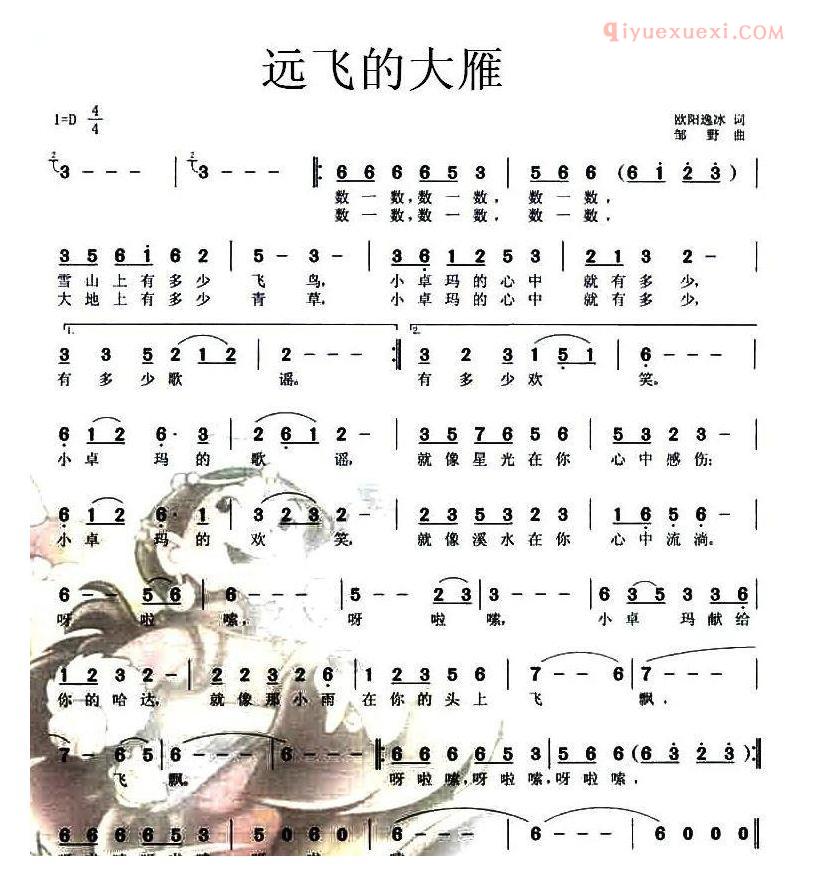 qiyuexuexi.com
远飞的大雁
1=D 4/4
欧阳逸冰 词
邹 野 曲
3 - - - | 3 - - - |: 6 6 6 6 6 5 3 | 5 6 6 6 (6 1 2 3) |
数一数,数一数, 数一数,
数一数,数一数, 数一数,
3 5 6 1 6 2 | 5 - 3 - | 3 6 1 2 5 3 | 2 1 3 2 - |
雪山上有多少 飞 鸟, 小卓玛的心中 就有多少,
大地上有多少 青 草, 小卓玛的心中 就有多少,
1. 2.
3 3 5 2 1 2 | 2 - - - :| 3 2 3 1 5 1 | 6 - - - |
有 多 少 歌 谣。 有 多 少 欢 笑。
6 1 2 6· 3 | 2 6 1 2 - | 3 5 7 6 5 6 | 5 3 2 3 - |
小 卓 玛 的 歌 谣, 就像星光在你 心中感伤;
6 1 2 6· 1 | 3 2 3 2 - | 2 3 5 3 2 3 | 1 6 5 6 - |
小 卓 玛 的 欢 笑, 就像溪水在你 心中流淌。
6 - - 5 6 | 6 - - - | 5 - - 2 3 | 3 - - - | 6 3 5 3 3 6 |
呀 啦 嗦, 呀 啦 嗦, 小 卓 玛献给
1 2 3 2 - | 2 2 3 2 6 | 1 2 3 5 6 | 7 - - 6 | 7 - - - |
你的哈达, 就像那小雨 在你的头上 飞 飘,
7 - 6 5 | 6 - - - | 6 - - - |: 6 6 6 6 6 5 3 | 5 6 6 (6 3 2 3) :|
飞 飘。 呀啦嗦,呀啦嗦,呀啦嗦,
6 6 6 6 6 5 3 | 5 6 6 6 - | 6 - - - | 6 - - - | 6 0 0 0 ‖